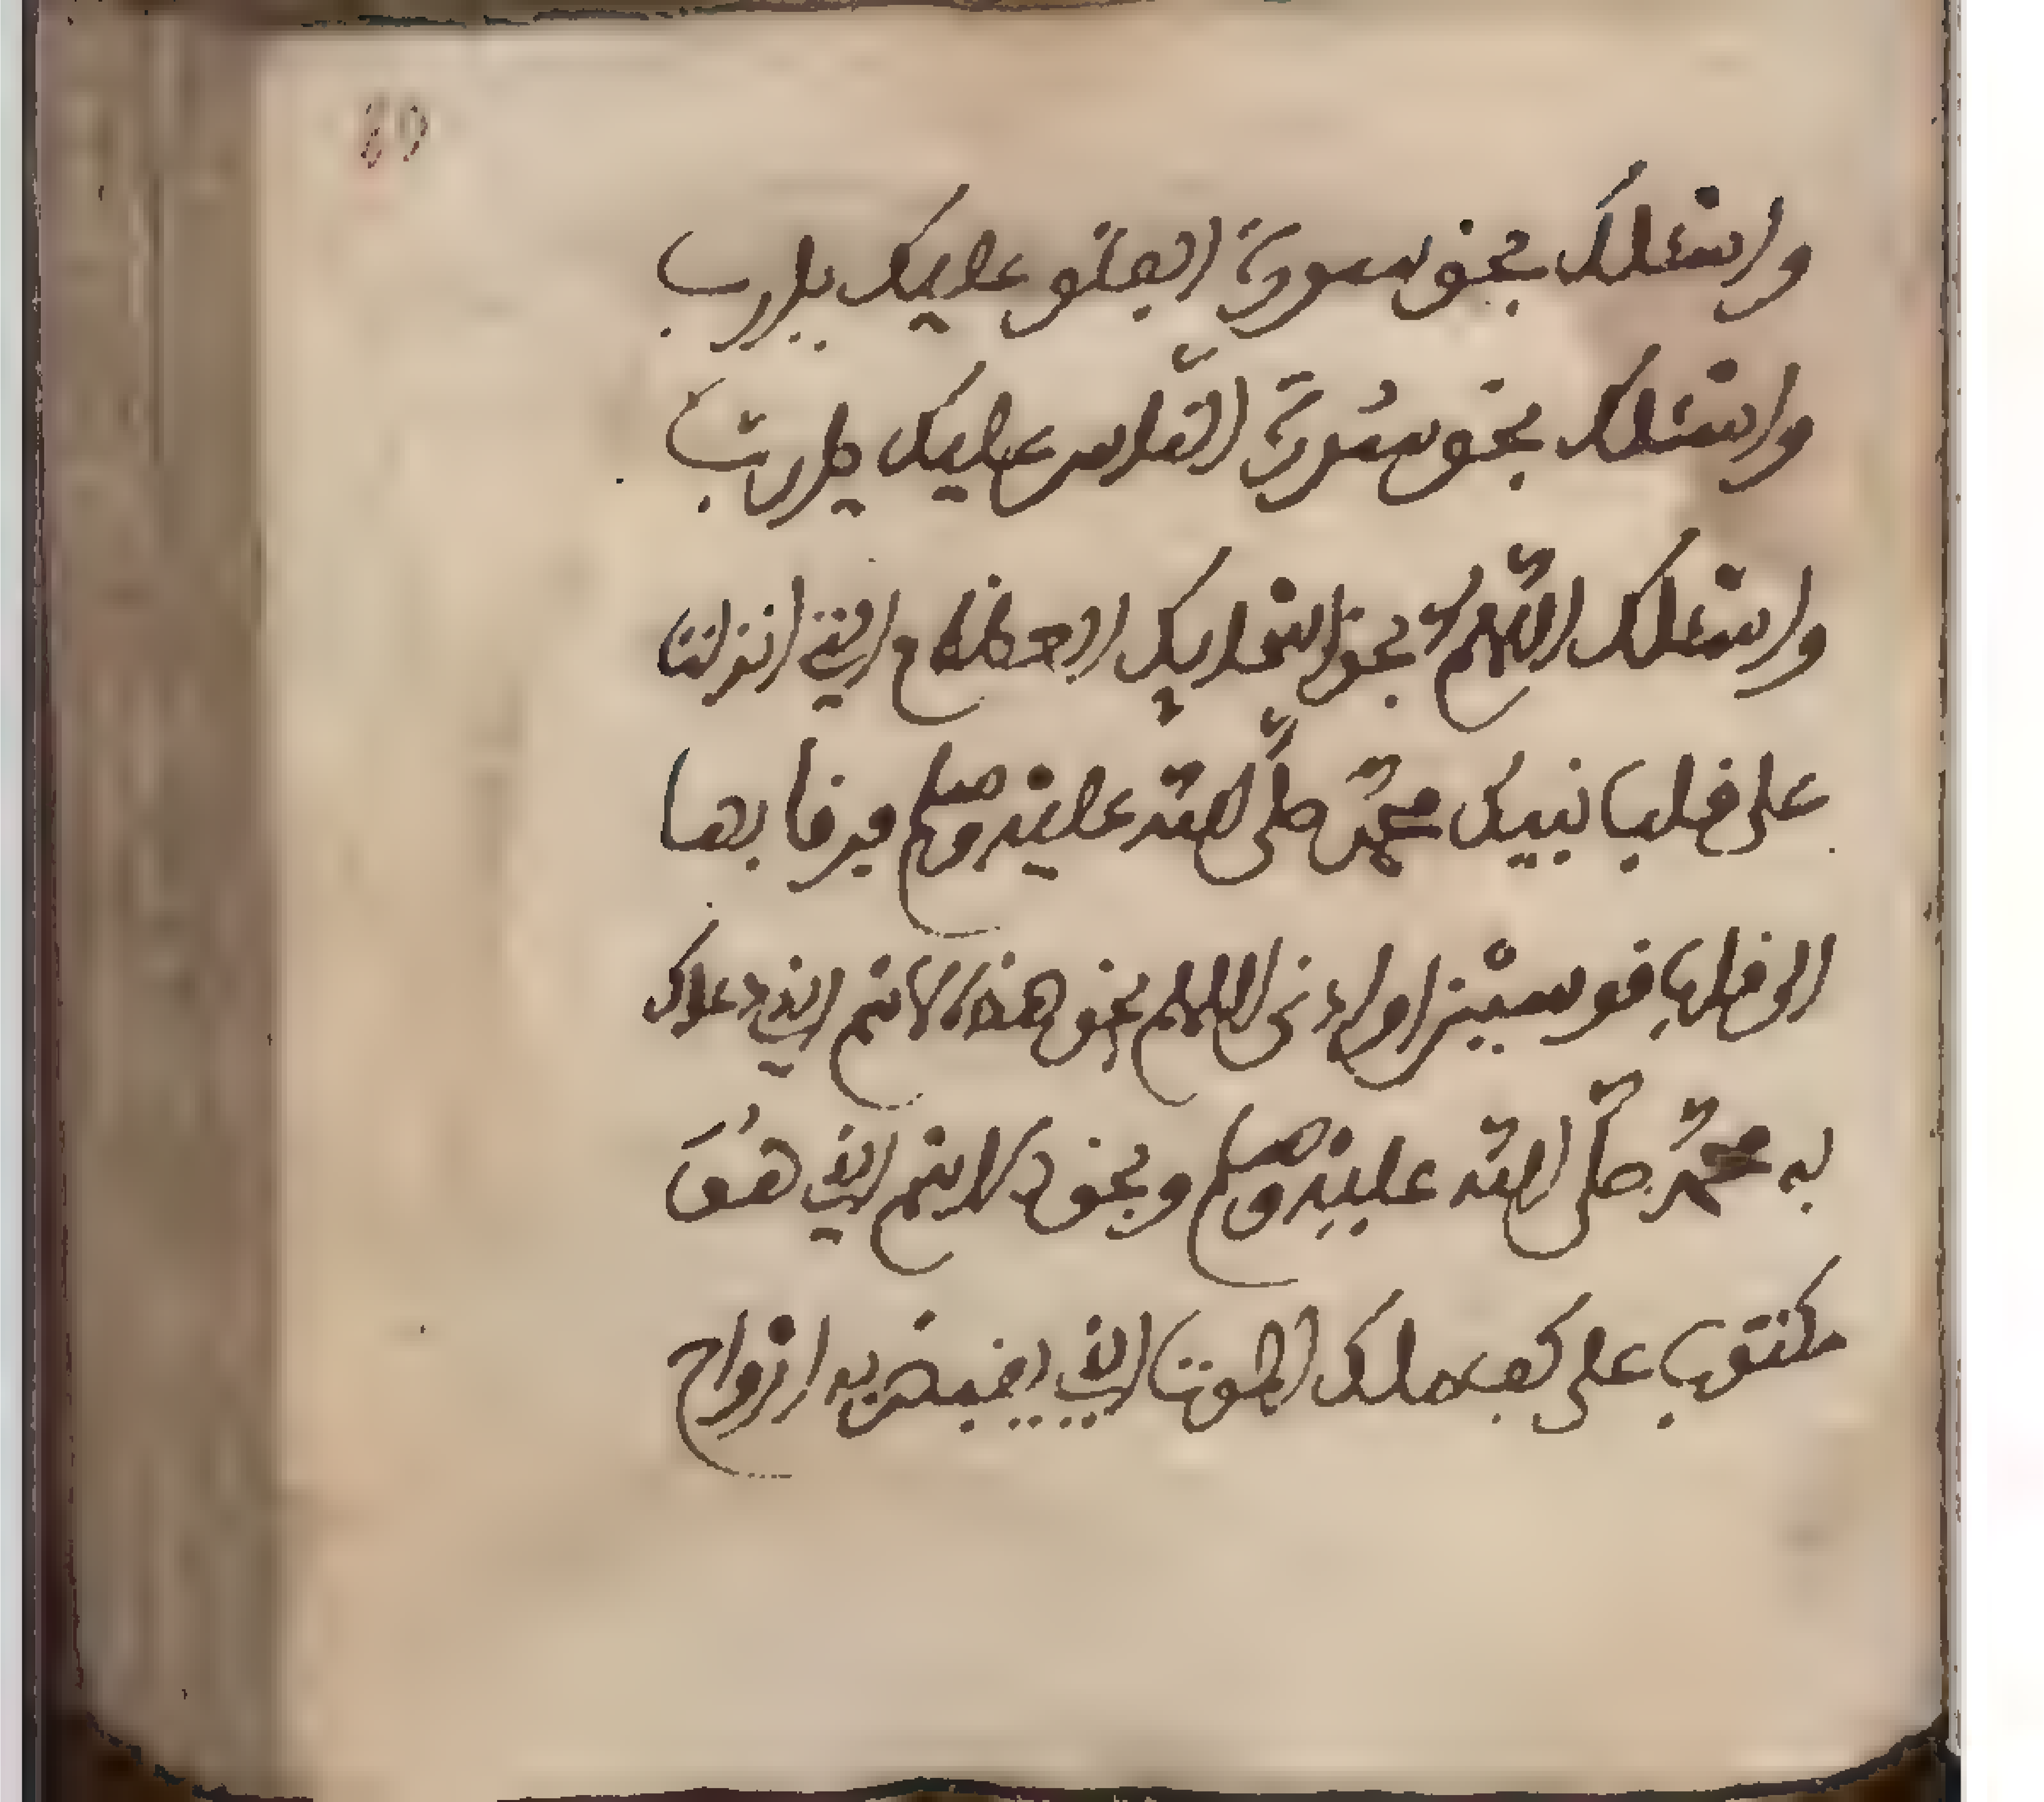 واسئلك بحق سورة الفلق عليك يارب
واسئلك بحق سورة الناس عليك يارب
واسئلك اللهم بحق اسمايك العظام التي انزلتا
على قلب نبيك محمد صلى الله عليه وسلم فرقا بها
الى قاب قوسين او ادنى اللهم بحق هذا الاسم الذي دعاك
به محمد صلى الله عليه وسلم وبحق الاسم الذي هو
مكتوب على كف ملك الموت الذي يقبض به ارواح